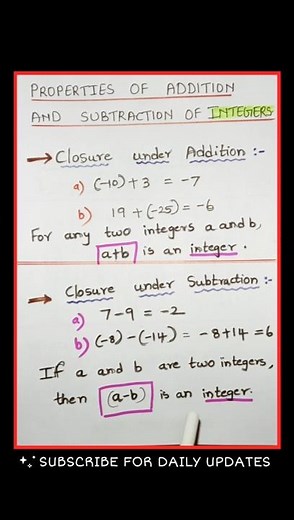 PROPERTIES OF ADDITION
AND SUBTRACTION OF INTEGERS
→ Closure under Addition :-
a) (-10)+3 = -7
b) 19+(-25)= -6
For any two integers a and b,
a+b is an integer.
→ Closure under Subtraction :-
a) 7-9 = -2
b) (-8)-(-14) = -8+14=6
If a and b are two integers,
then (a-b) is an integer.
SUBSCRIBE FOR DAILY UPDATES